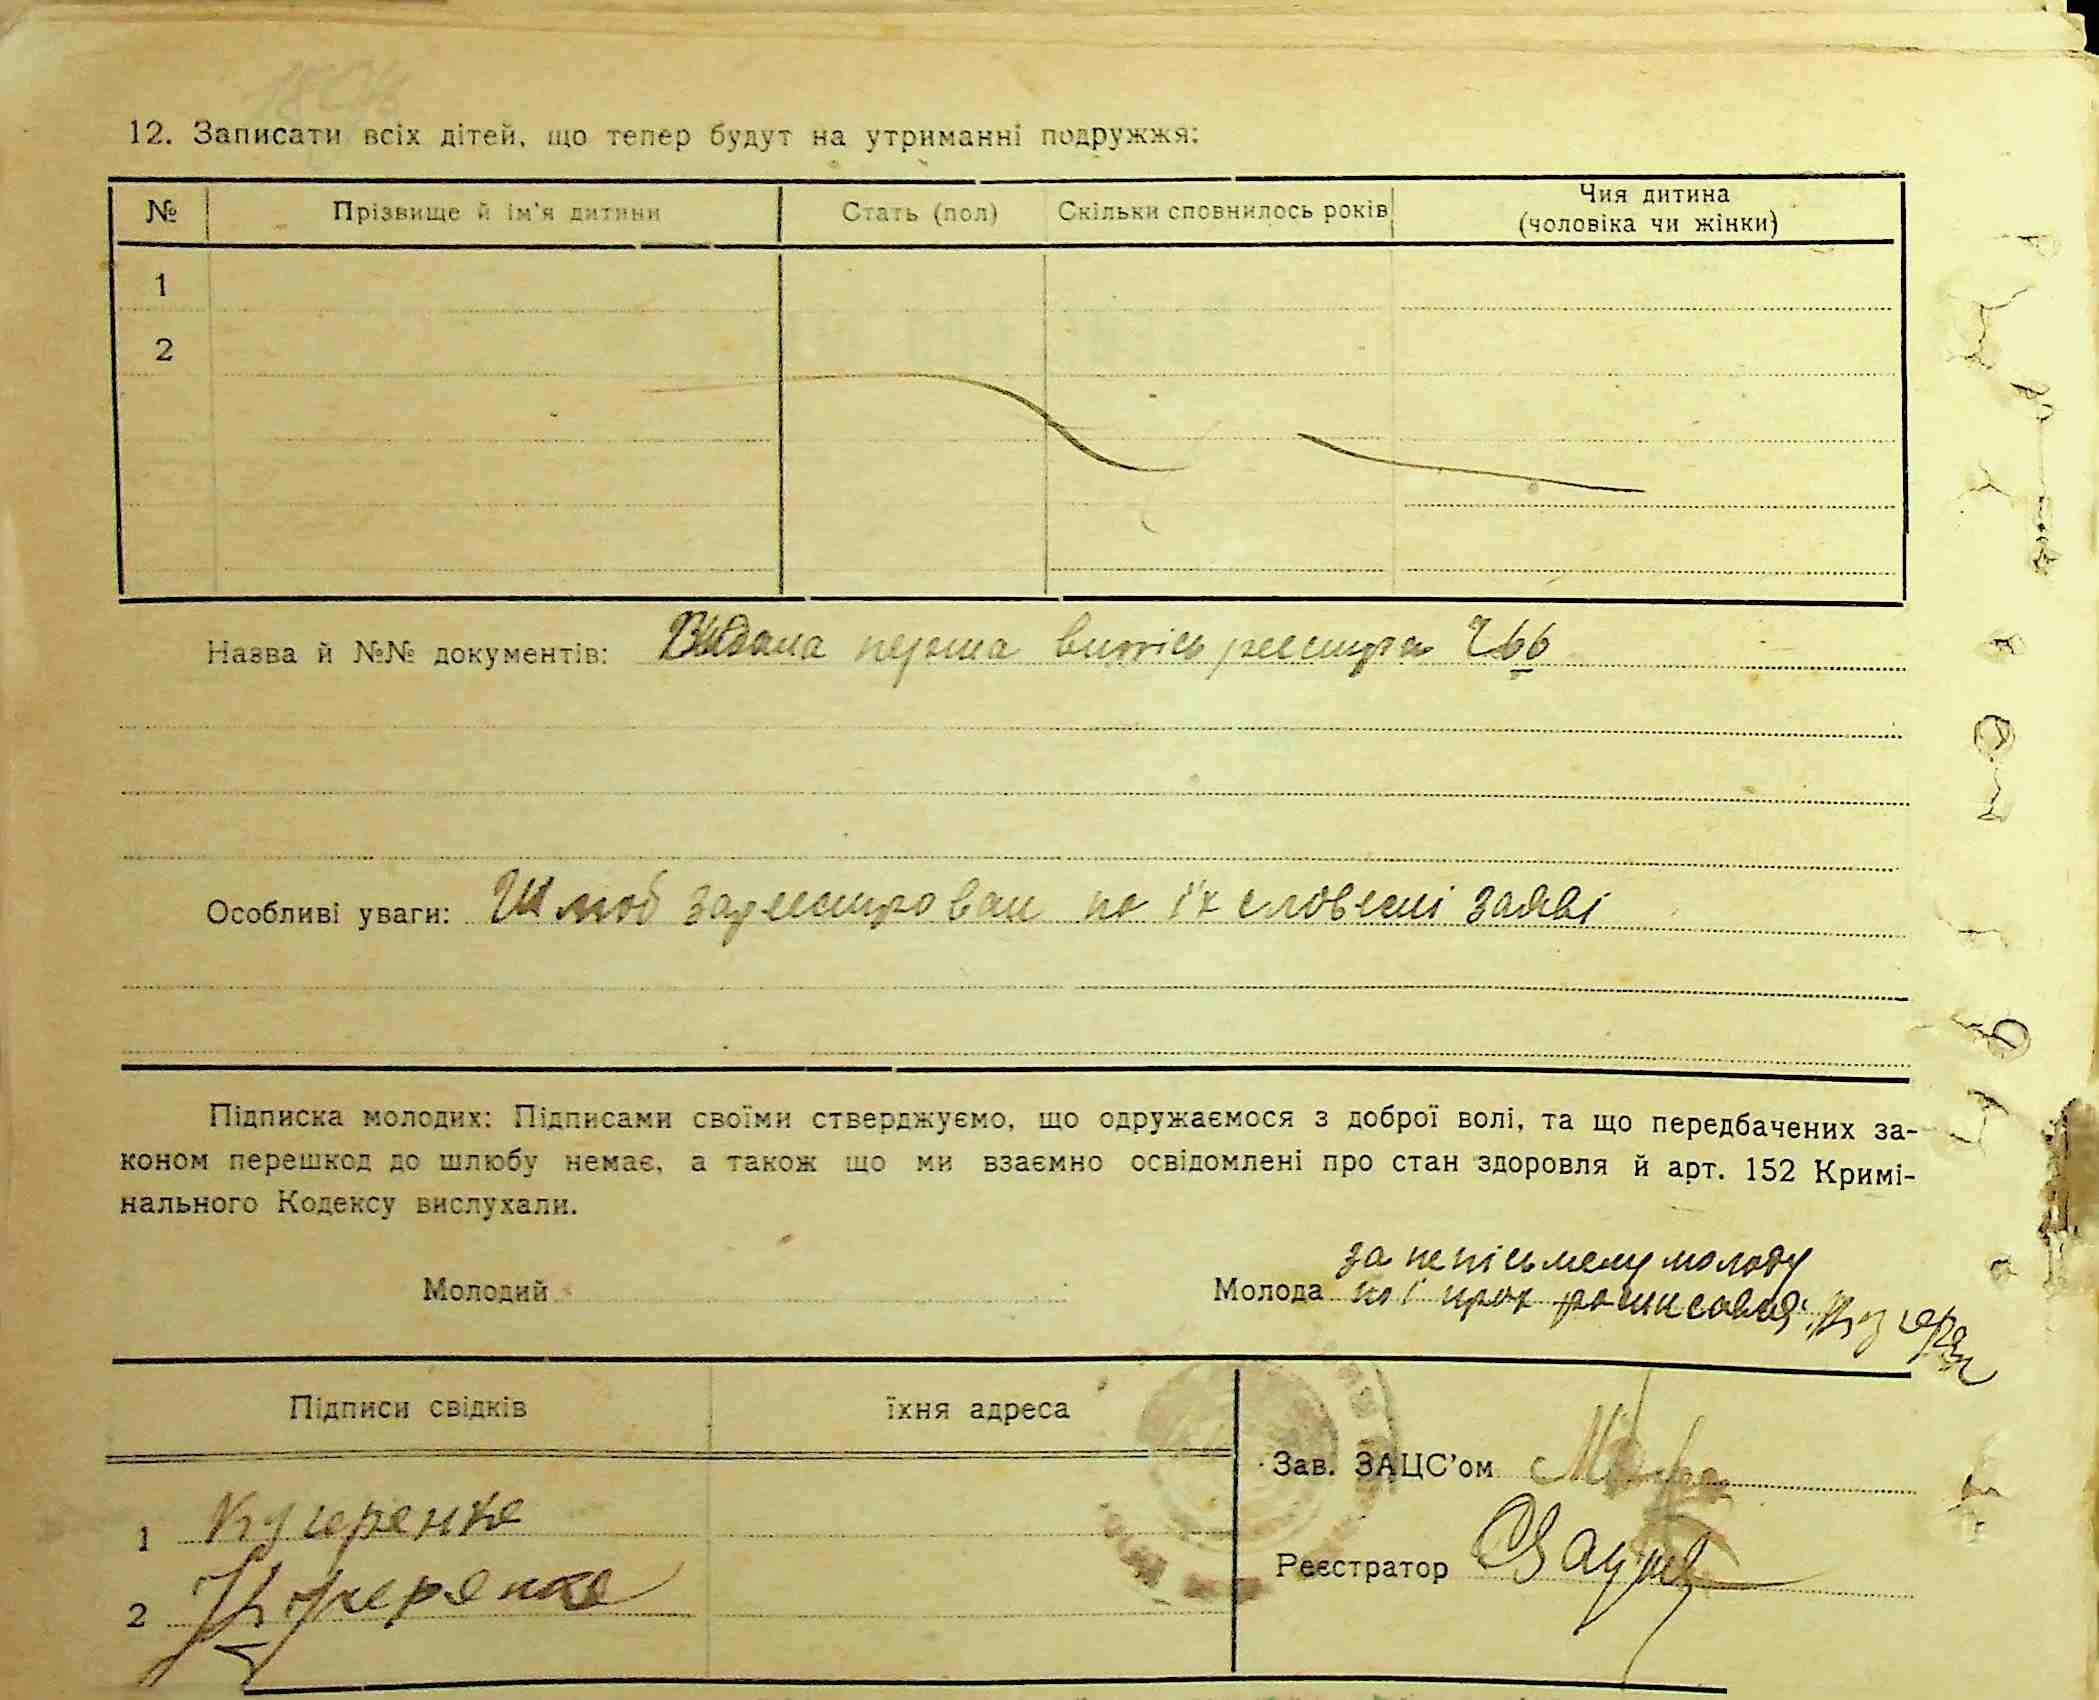 12. Записати всіх дітей, що тепер будут на утриманні подружжя:
№ Прізвище й ім'я дитини Стать (пол) Скільки сповнилось років Чия дитина (чоловіка чи жінки)
1
2
Назва й №№ документів: Видана перша випись реєстра
Особливі уваги: Шлюб зареєстрован по їх словесні заяві
Підписка молодих: Підписами своїми стверджуємо, що одружаємося з доброї волі, та що передбачених за-
коном перешкод до шлюбу немає, а також що ми взаємно освідомлені про стан здоровля й арт. 152 Кримі-
нального Кодексу вислухали.
за неписьмену молоду
Молодий Молода по її прох росписався: Кучерен
Підписи свідків їхня адреса
Зав. ЗАЦС'ом
1 Кучеренко
Реєстратор
2 Кучеренко